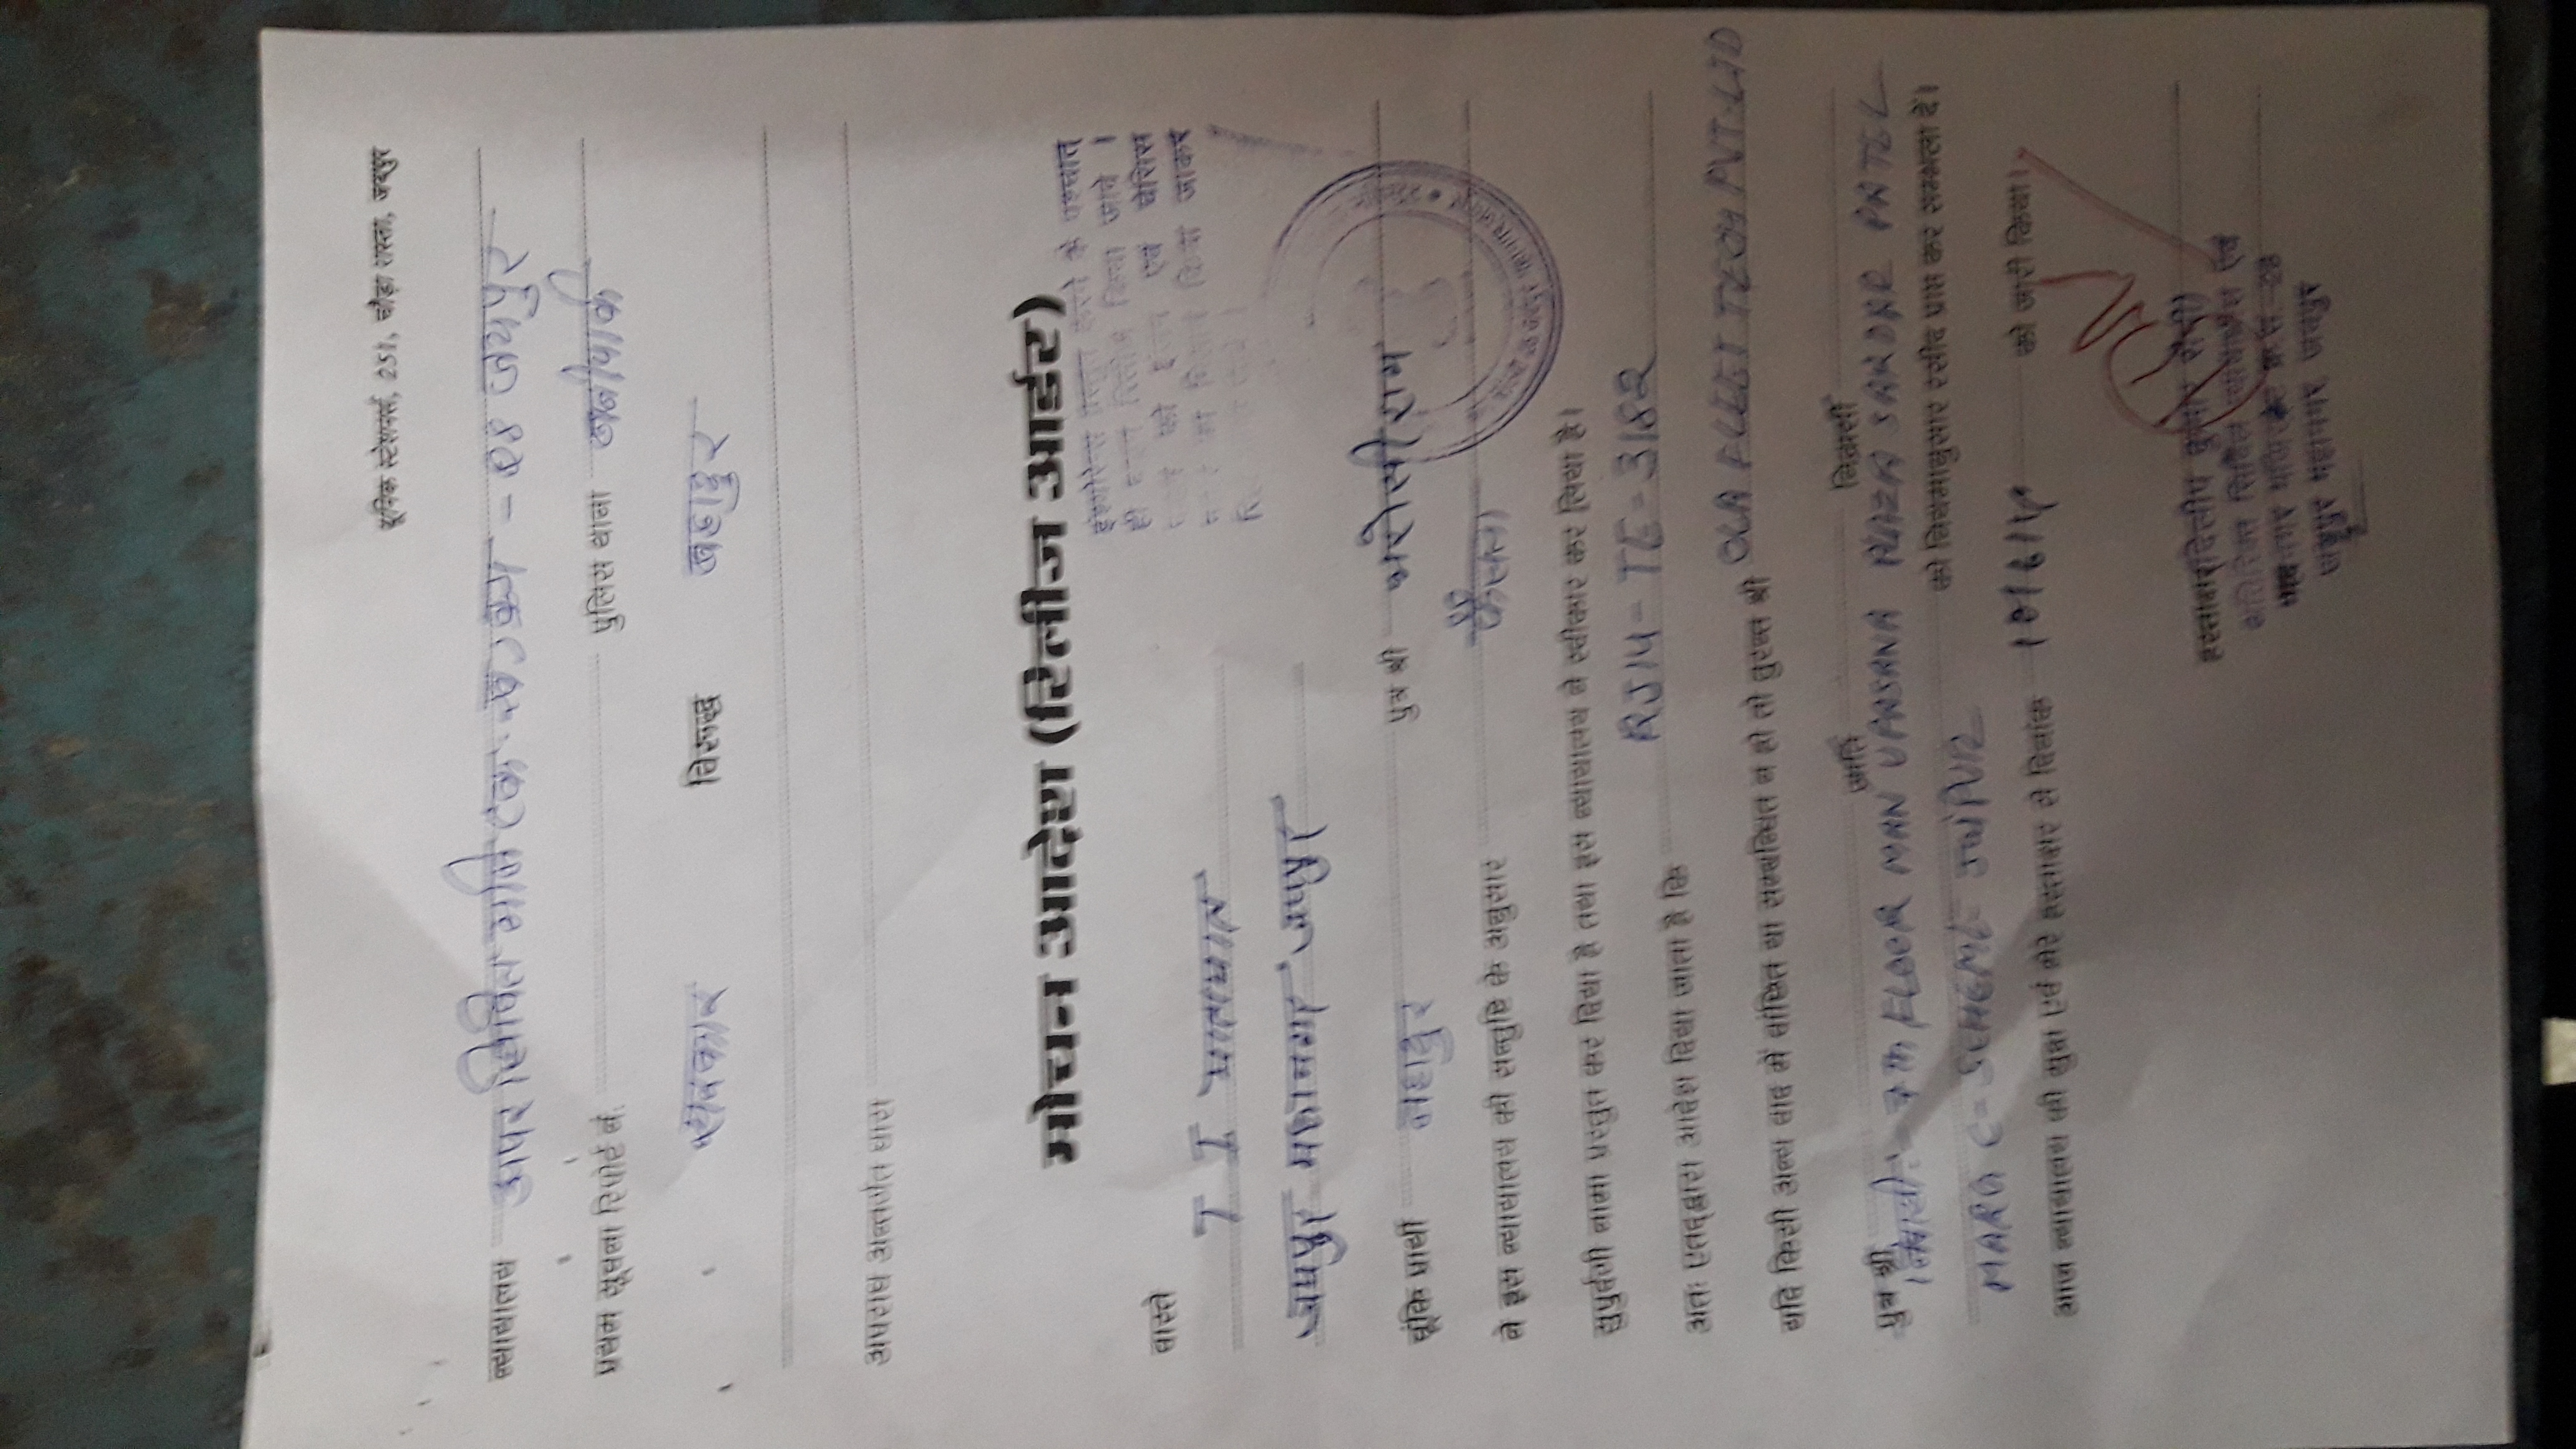 यूनिक स्टेशनर्स, 251, चौड़ा रास्ता, जयपुर
न्यायालय अपर सिविल - 08 जयपुर
प्रथम सूचना रिपोर्ट नं. पुलिस थाना
सरकार विरुद्ध बहादुर
अपराध अन्तर्गत धारा
मोचन आदेश (रिलीज आर्डर)
के पश्चात
ही किया जावे ।
को एवं चेसिस
का किया जाकर
वास्ते
T I यातायात
जयपुर महानगर जयपुर
चूंकि प्रार्थी बहादुर पुत्र श्री
ने इस न्यायालय की सन्तुष्टि के अनुसार
सुपुर्दगी नामा प्रस्तुत कर दिया है तथा इस न्यायालय ने स्वीकार कर लिया है।
अतः एतद्द्वारा आदेश दिया जाता है कि RJ14-TE-3182
यदि किसी अन्य वाद में वांछित या सम्बन्धित न हो तो तुरन्त श्री OLA FLEET TECH PVT. LTD
पुत्र श्री जाति निवासी
निवासी FLOOR MAN UPASANA PLAZA SARDAR PATEL
MARG C-SCHEME JAIPUR को नियमानुसार रसीद प्राप्त कर सम्भला दें।
आज न्यायालय की मुद्रा एवं मेरे हस्ताक्षर से दिनांक को जारी किया।
हस्ताक्षर
अतिरिक्त सिविल न्यायाधीश एवं
महानगर
जयपुर महानगर जयपुर